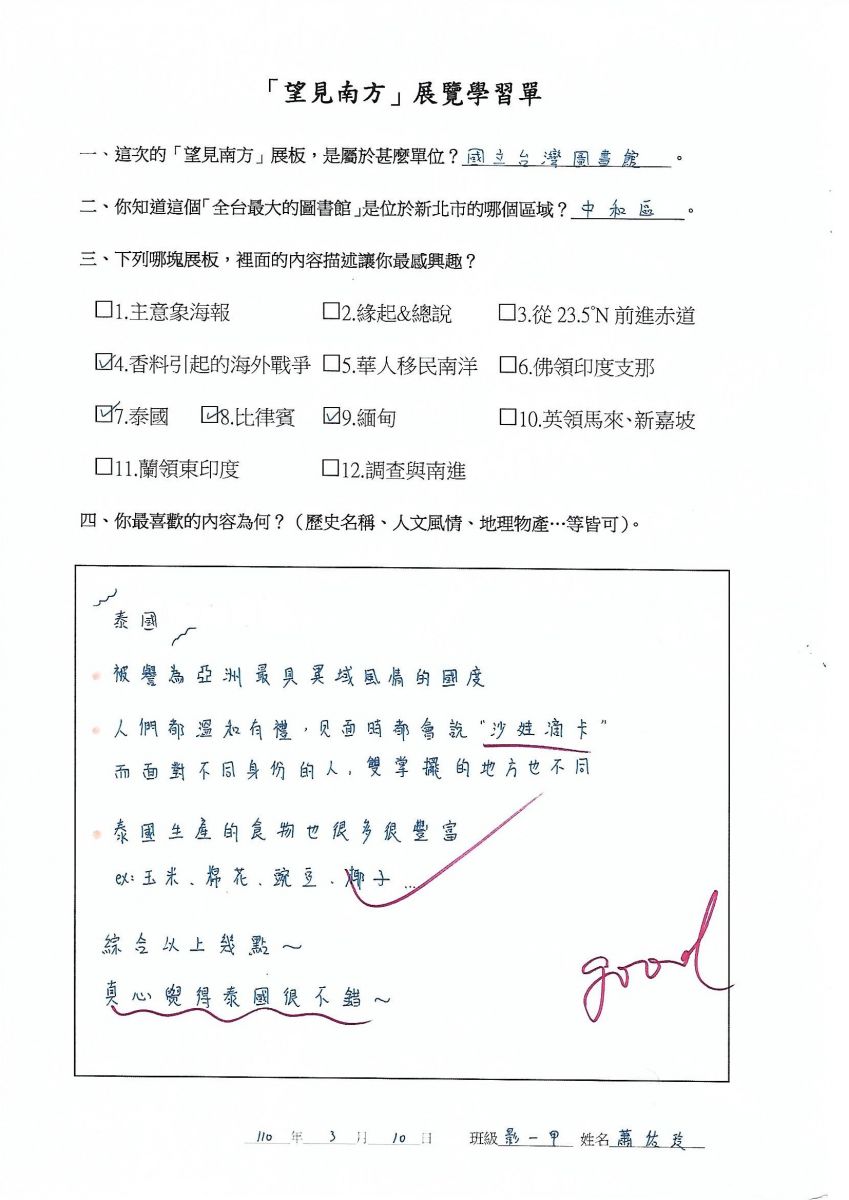 「望見南方」展覽學習單
一、這次的「望見南方」展板，是屬於甚麼單位？國立台灣圖書館。
二、你知道這個「全台最大的圖書館」是位於新北市的哪個區域？中和區。
三、下列哪塊展板，裡面的內容描述讓你最感興趣？
□1.主意象海報 □2.緣起&總說 □3.從 23.5°N 前進赤道
☑4.香料引起的海外戰爭 □5.華人移民南洋 □6.佛領印度支那
☑7.泰國 ☑8.比律賓 ☑9.緬甸 □10.英領馬來、新嘉坡
□11.蘭領東印度 □12.調查與南進
四、你最喜歡的內容為何？（歷史名稱、人文風情、地理物產…等皆可）。
泰國
被譽為亞洲最具異域風情的國度
人們都溫和有禮，見面時都會說"沙娃滴卡"
而面對不同身份的人，雙掌擺的地方也不同
泰國生產的食物也很多很豐富
ex: 玉米、棉花、豌豆、椰子...
綜合以上幾點～
真心覺得泰國很不錯～
good
110 年 3 月 10 日 班級 影一甲 姓名 蕭佑玲